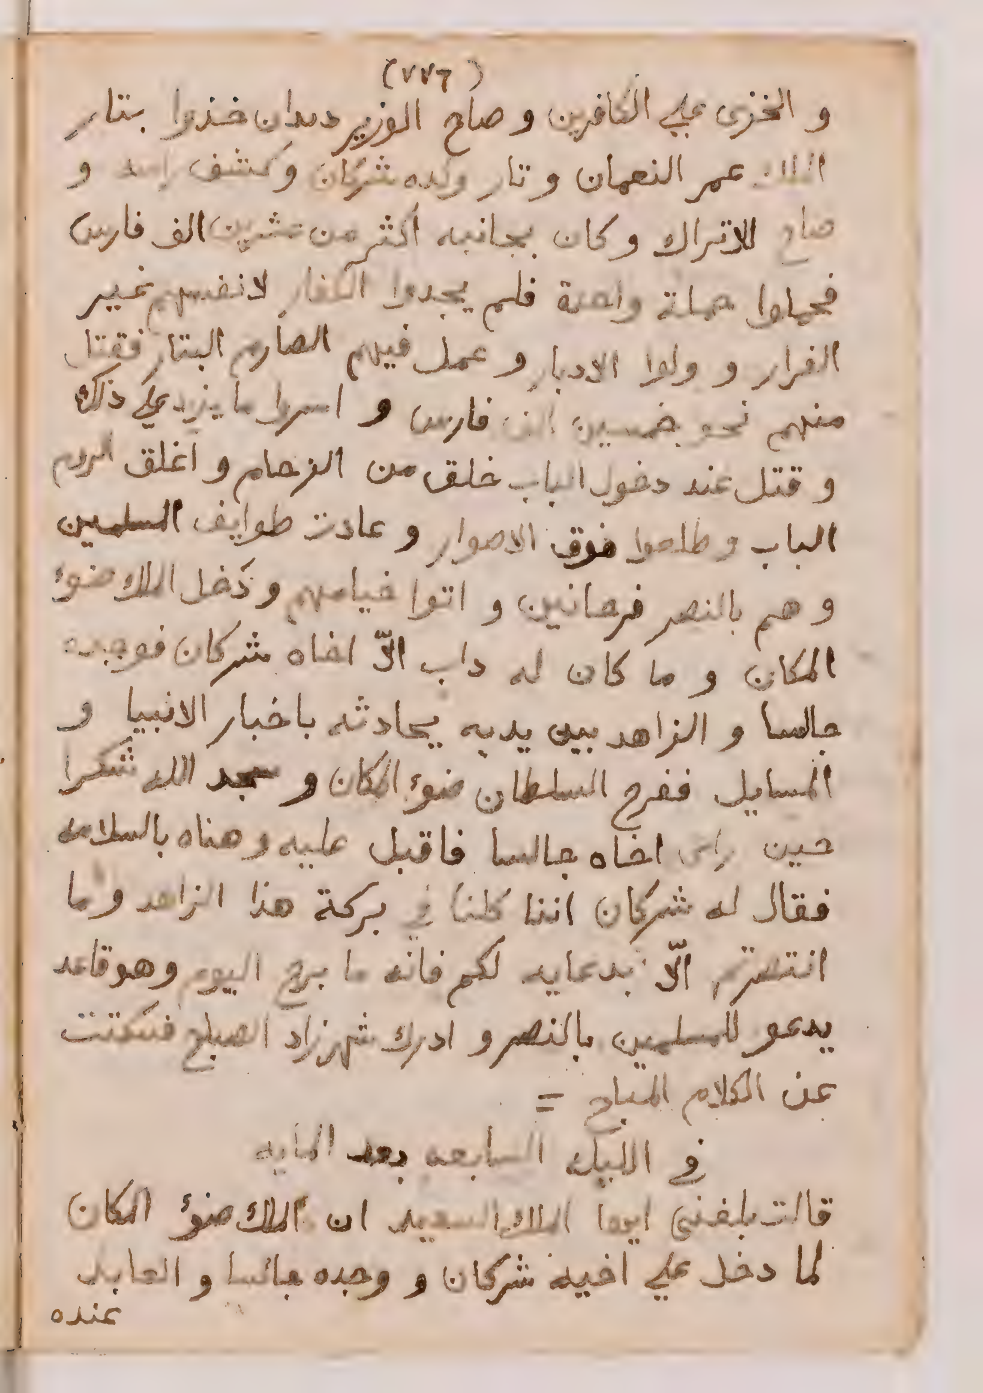 (٧٧٦)
و الخزى علي الكافرين و صاح الوزير دندان خذوا بتار
الملك عمر النعمان و تار ولده شركان وكشف راسه و
صاح للاتراك و كان بجانبه أكثر من عشرين الف فارس
فحملوا حملة واحدة فلم يجدوا الكفار لانفسهم غير
الفرار و ولوا الادبار و عمل فيهم الصارم البتار فقتل
منهم نحو خمسين الف فارس و اسروا ما يزيد علي ذلك
و قتل عند دخول الباب خلق من الزحام و اغلق الروم
الباب و طلعوا فوق الاصوار و عادت طوايف المسلمين
و هم بالنصر فرحانين و اتوا خيامهم و دخل الملك ضوؤ
المكان و ما كان له داب الاّ اخاه شركان فوجده
جالسا و الزاهد بين يديه يحادثه باخبار الانبيا و
المسايل ففرح السلطان ضوؤ المكان و سجد الله شكرا
حين راى اخاه جالسا فاقبل عليه و هناه بالسلامه
فقال له شركان اننا كلنا في بركة هذا الزاهد و ما
انتصرتم الاّ بدعايه لكم فانه ما برح اليوم وهو قاعد
يدعو للمسلمين بالنصر و ادرك شهرزاد الصباح فسكتت
عن الكلام المباح =
في الليلة السابعه بعد المايه
قالت بلغنى ايها الملك السعيد ان الملك ضوؤ المكان
لما دخل علي اخيه شركان و وجده جالسا و العابد
عنده